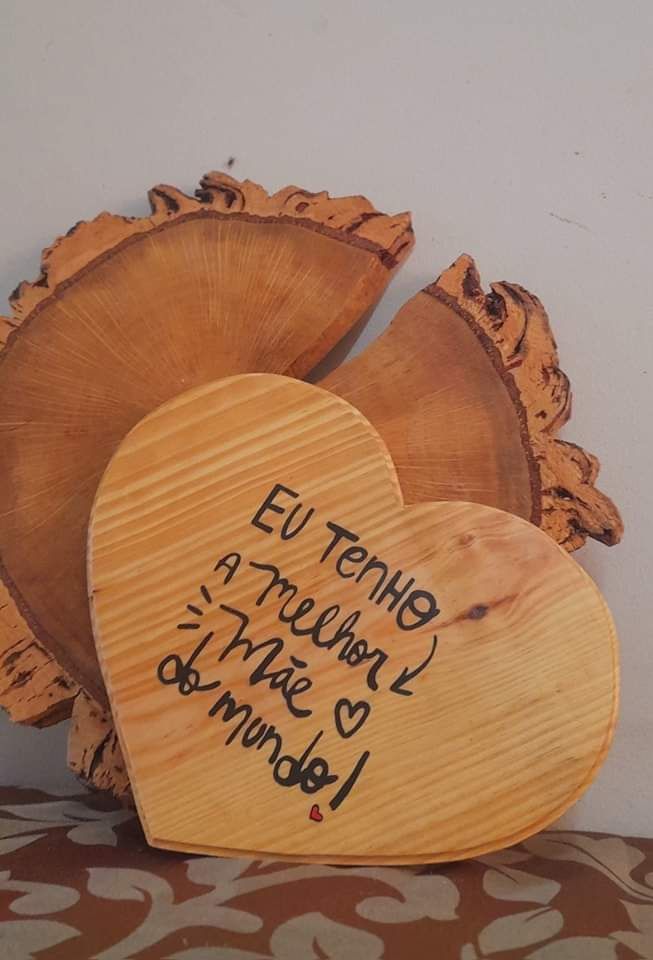 EU TENHO
A melhor
Mãe
do mundo!